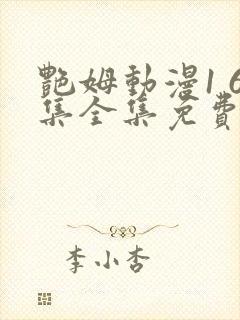 艷姆動漫16
集全集免費
李小杏